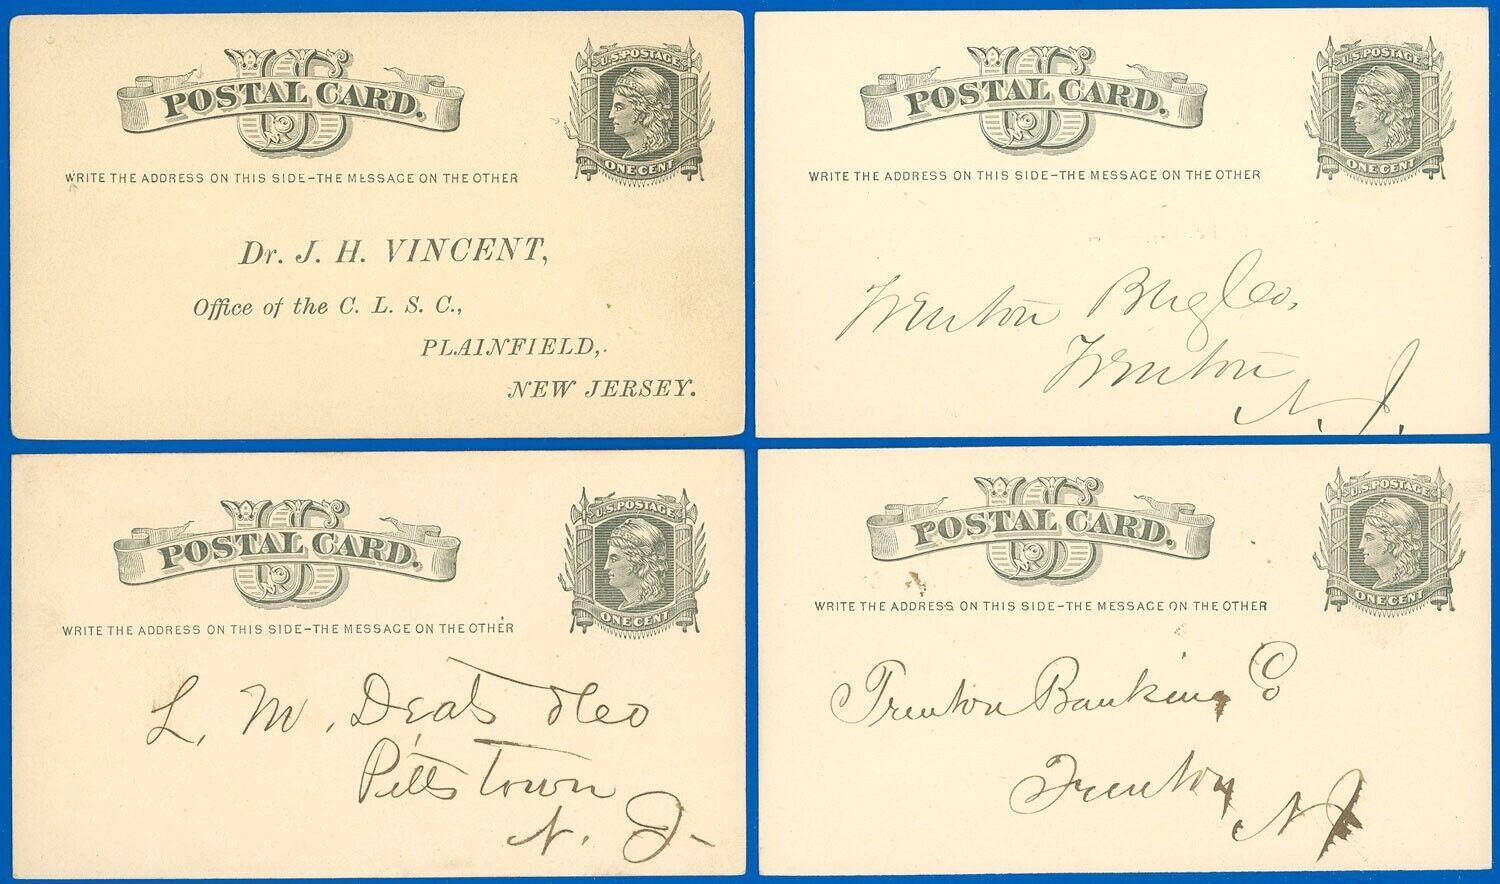 US
POSTAL CARD.
U.S. POSTAGE
ONE CENT
WRITE THE ADDRESS ON THIS SIDE–THE MESSAGE ON THE OTHER
Dr. J. H. VINCENT,
Office of the C. L. S. C.,
PLAINFIELD,
NEW JERSEY.
US
POSTAL CARD.
U.S. POSTAGE
ONE CENT
WRITE THE ADDRESS ON THIS SIDE–THE MESSAGE ON THE OTHER
Trenton Bkg Co,
Trenton
N. J.
US
POSTAL CARD.
U.S. POSTAGE
ONE CENT
WRITE THE ADDRESS ON THIS SIDE–THE MESSAGE ON THE OTHER
L. M. Deats
Pittstown
N. J.
US
POSTAL CARD.
U.S. POSTAGE
ONE CENT
WRITE THE ADDRESS ON THIS SIDE–THE MESSAGE ON THE OTHER
Trenton Banking Co
Trenton
N J